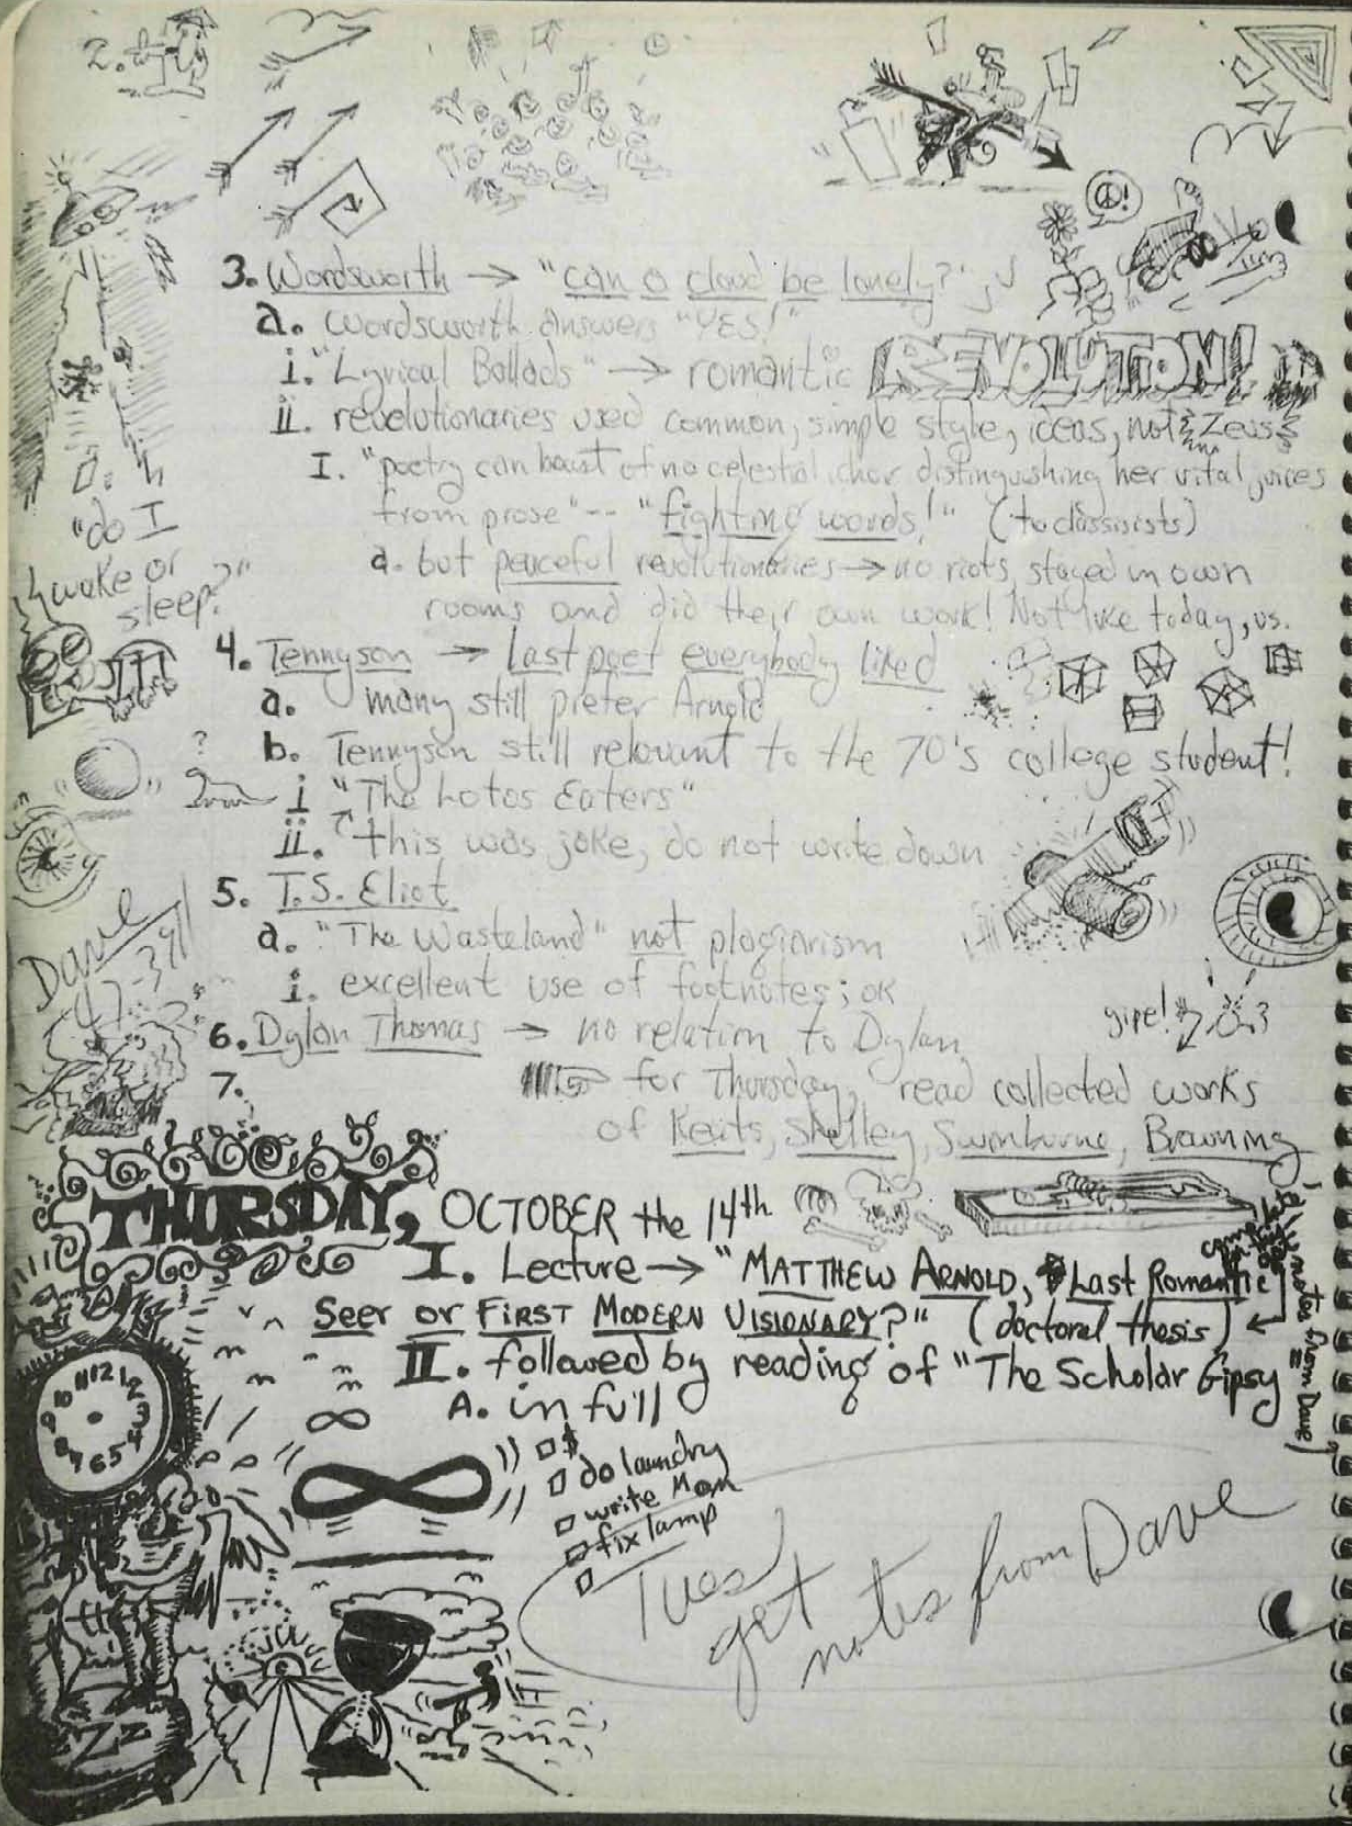 2.
3. Wordsworth → "can a cloud be lonely?"
a. Wordsworth answers "YES!"
i. "Lyrical Ballads" → romantic REVOLUTION!
ii. revolutionaries used common, simple style, ideas, not Zeus
I. "poetry can boast of no celestial ichor distinguishing her vital juices
from prose" -- "fighting words!" (to classisists)
a. but peaceful revolutionaries → no riots, stayed in own
rooms and did their own work! Not like today, us.
"do I
wake or
sleep?"
4. Tennyson → last poet everybody liked
a. many still prefer Arnold
b. Tennyson still relevant to the 70's college student!
?
i "The Lotos Eaters"
ii. this was joke, do not write down
5. T.S. Eliot
a. "The Wasteland" not plagiarism
i. excellent use of footnotes; OK
Dave
6. Dylan Thomas → no relation to Dylan
7.
for Thursday, read collected works
of Keats, Shelley, Swinburne, Browning
THURSDAY, OCTOBER the 14th
I. Lecture → "MATTHEW ARNOLD, Last Romantic
Seer or FIRST MODERN VISIONARY?" (doctoral thesis)
II. followed by reading of "The Scholar Gipsy
A. in full
notes from Dave)
11 12 1 2 3 4 5 6 7 8 9 10
$
do laundry
write Mom
fix lamp
Tues
get
notes from Dave
ZZZ